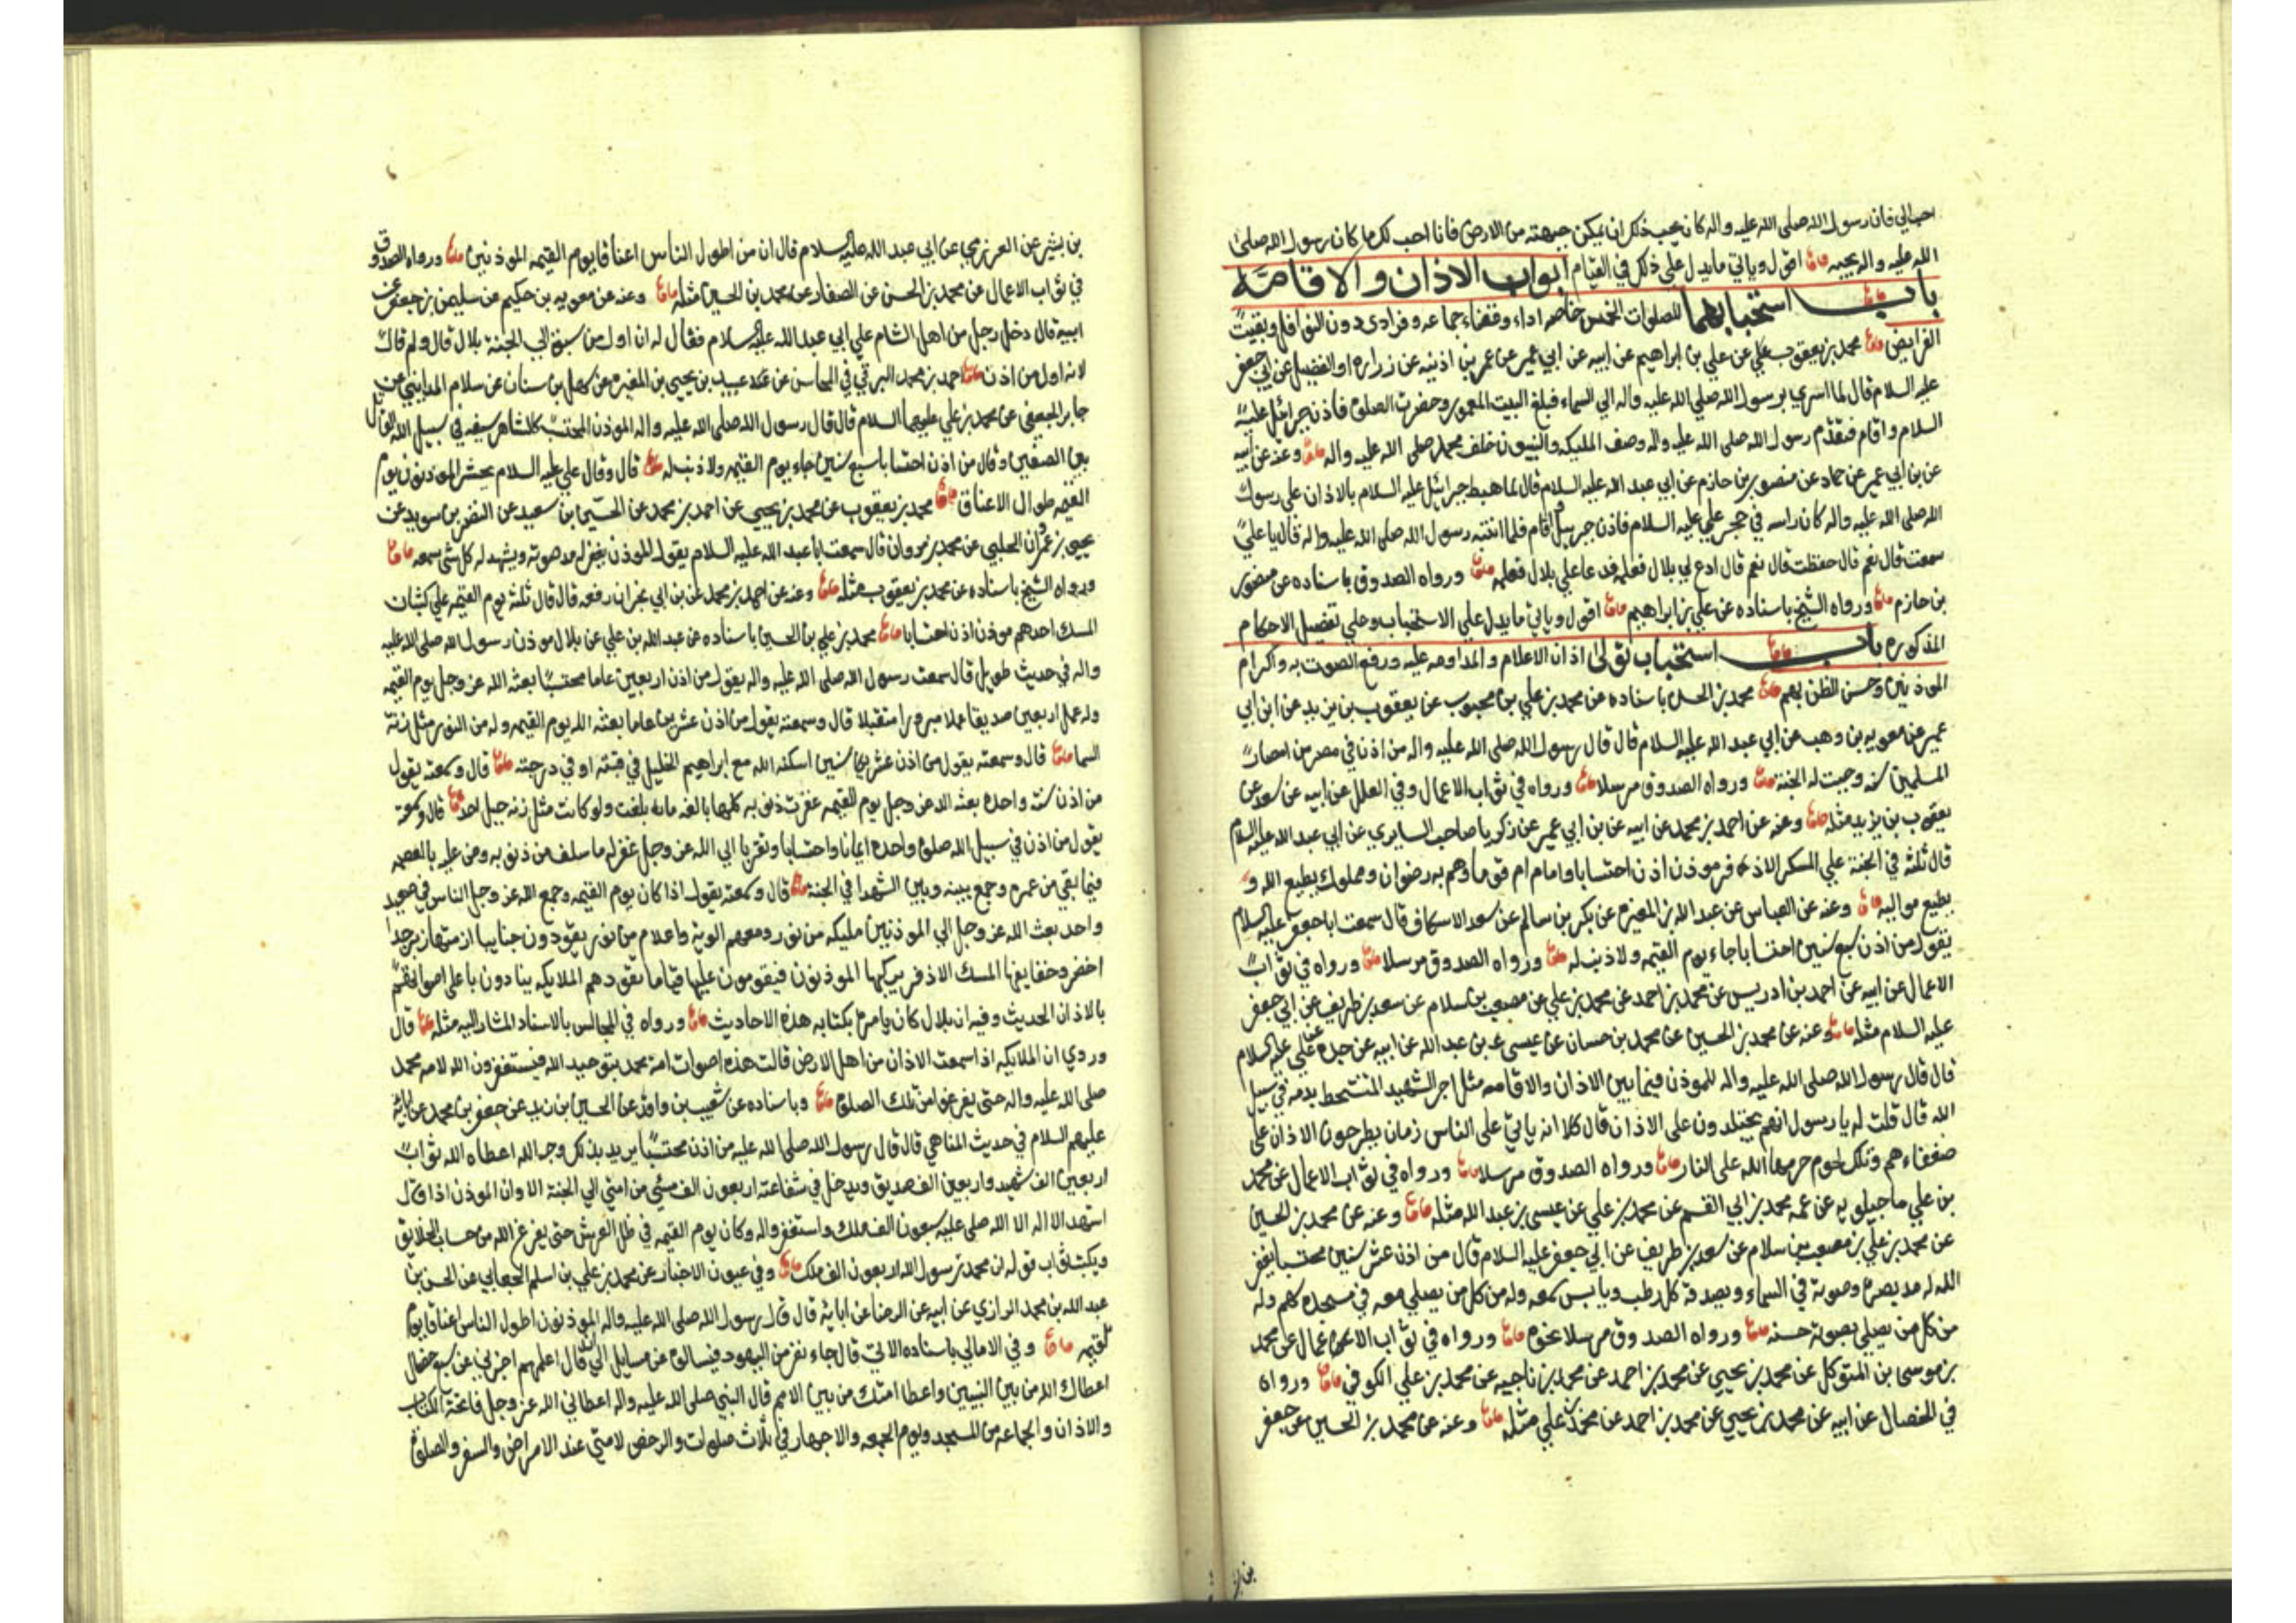 احب الي فان رسول الله صلى الله عليه واله كان يحب ذلك ان يمكن جبهته من الارض فانا احب لك ما كان رسول الله صلى
الله عليه واله يحبه اقول وياتي ما يدل على ذلك في القيام ابواب الاذان والاقامة
باب استحبابهما للصلوات الخمس خاصه اداء وقضاء جماعه وفرادى دون النوافل وبقيت
الفرايض محمد بن يعقوب عن علي بن ابراهيم عن ابيه عن ابي عمير عن عمر بن اذينه عن زراره او الفضيل عن ابي جعفر
عليه السلام قال لما اسري برسول الله صلي الله عليه واله الي السماء فبلغ البيت المعمور وحضرت الصلوة فاذن جبرائيل عليه
السلام واقام فتقدم رسول الله صلى الله عليه واله وصف المليكه والنبيون خلف محمد صلى الله عليه واله وعنه عن ابيه
عن بن ابي عمير عن حماد عن منصور بن حازم عن ابي عبد الله عليه السلام قال لما هبط جبرائيل عليه السلام بالاذان علي رسول
الله صلى الله عليه واله كان راسه في حجر علي عليه السلام فاذن جبرييل واقام فلما انتبه رسول الله صلى الله عليه واله قال يا علي
سمعت قال نعم قال حفظت قال نعم قال ادع لي بلال فعلمه فدعا علي بلال فعلمه ورواه الصدوق باسناده عن منصور
بن حازم ورواه الشيخ باسناده عن علي بن ابراهيم اقول وياتي ما يدل علي الاستحباب وعلي تفصيل الاحكام
المذكوره باب استحباب تولي اذان الاعلام والمداومه عليه ورفع الصوت به واكرام
الموذنين وحسن الظن بهم محمد بن الحسن باسناده عن محمد بن علي بن محبوب عن يعقوب بن يزيد عن ابن ابي
عمير عن معويه بن وهب عن ابي عبد الله عليه السلام قال قال رسول الله صلي الله عليه واله من اذن في مصر من امصار
المسلمين سنه وجبت له الجنة ورواه الصدوق مرسلا ورواه في ثواب الاعمال وفي العلل عن ابيه عن سعد عن
يعقوب بن يزيد مثله وعنه عن احمد بن محمد عن ابيه عن بن ابي عمير عن زكريا صاحب السابري عن ابي عبد الله عليه السلام
قال ثلثه في الجنة علي المسك الاذفر موذن اذن احتسابا وامام ام قوما وهم به رضوان ومملوك يطيع الله و
يطيع مواليه وعنه عن العباس عن عبد الله بن المغيره عن بكر بن سالم عن سعد الاسكاف قال سمعت ابا جعفر عليه السلام
يقول من اذن سبع سنين احتسابا جاء يوم القيمه ولا ذنب له ورواه الصدوق مرسلا ورواه في ثواب
الاعمال عن ابيه عن احمد بن ادريس عن محمد بن احمد عن محمد بن علي عن مصعب بن سلام عن سعد بن طريف عن ابي جعفر
عليه السلام مثله وعنه عن محمد بن الحسين عن محمد بن حسان عن عيسى بن عبد الله عن ابيه عن جده عن علي عليه السلام
قال قال رسول الله صلى الله عليه واله للموذن فيما بين الاذان والاقامه مثل اجر الشهيد المتشحط بدمه في سبيل
الله قال قلت له يا رسول انهم يجتلدون على الاذان قال كلا انه ياتي على الناس زمان يطرحون الاذان على
ضعفاءهم وتلك لحوم حرمها الله على النار ورواه الصدوق مرسلا ورواه في ثواب الاعمال عن محمد
بن علي ماجيلويه عن عمه محمد بن ابي القسم عن محمد بن علي عن عيسى بن عبد الله مثله وعنه عن محمد بن الحسين
عن محمد بن علي بن مصعب بن سلام عن سعد بن طريف عن ابي جعفر عليه السلام قال من اذن عشر سنين محتسبا يغفر
الله له مد بصره وصوته في السماء ويصدقه كل رطب ويابس سمعه وله من كل من يصلي معه في مسجده سهم وله
من كل من يصلي بصوته حسنه ورواه الصدوق مرسلا نحوه ورواه في ثواب الاعمال عن محمد
بن موسى بن المتوكل عن محمد بن يحيي عن محمد بن احمد عن محمد بن ناجيه عن محمد بن علي الكوفي ورواه
في الخصال عن ابيه عن محمد بن يحيي عن محمد بن احمد عن محمد بن علي مثله وعنه عن محمد بن الحسين عن جعفر
بن بشير عن العرزمي عن ابي عبد الله عليه السلام قال ان من اطول الناس اعناقا يوم القيمه الموذنين ورواه الصدوق
في ثواب الاعمال عن محمد بن الحسن عن الصفار عن محمد بن الحسين مثله وعنه عن معويه بن حكيم عن سليمن بن جعفر عن
ابيه قال دخل رجل من اهل الشام علي ابي عبد الله عليه السلام فقال له ان اول من سبق الي الجنة بلال قال ولم قال
لانه اول من اذن احمد بن محمد البرقي في المحاسن عن عبيد بن يحيي بن المغيره عن سهل بن سنان عن سلام المدايني عن
جابر الجعفي عن محمد بن علي عليهما السلام قال قال رسول الله صلى الله عليه واله الموذن المحتسب كالشاهر سيفه في سبيل الله القاتل
بين الصفين وقال من اذن احتسابا سبع سنين جاء يوم القيمه ولا ذنب له قال وقال علي عليه السلام يحشر الموذنون يوم
القيمه طوال الاعناق محمد بن يعقوب عن محمد بن يحيي عن احمد بن محمد عن الحسين بن سعيد عن النضر بن سويد عن
يحيى بن عمران الحلبي عن محمد بن مروان قال سمعت ابا عبد الله عليه السلام يقول الموذن يغفر له مد صوته ويشهد له كل شي سمعه
ورواه الشيخ باسناده عن محمد بن يعقوب مثله وعنه عن احمد بن محمد عن بن ابي نجران رفعه قال قال ثلثه يوم القيمه علي كثبان
المسك احدهم موذن اذن احتسابا محمد بن علي بن الحسين باسناده عن عبد الله بن علي عن بلال موذن رسول الله صلى الله عليه
واله في حديث طويل قال سمعت رسول الله صلى الله عليه واله يقول من اذن اربعين عاما محتسبا بعثه الله عز وجل يوم القيمه
وله عمل اربعين صديقا عملا مبرورا متقبلا قال وسمعته يقول من اذن عشرين عاما بعثه الله يوم القيمه وله من النور مثل زنة
السما قال وسمعته يقول من اذن عشر سنين اسكنه الله مع ابراهيم الخليل في قبته او في درجته قال وسمعته يقول
من اذن سنه واحده بعثه الله عز وجل يوم القيمه غفرت ذنوبه كلها بالغه ما بلغت ولو كانت مثل زنه جبل احد قال وسمعته
يقول من اذن في سبيل الله صلوة واحده ايمانا واحتسابا وتقربا الي الله عز وجل غفر له ما سلف من ذنوبه ومن عليه بالعصمه
فيما بقي من عمره وجمع بينه وبين الشهدا في الجنة قال وسمعته يقول اذا كان يوم القيمه وجمع الله عز وجل الناس في صعيد
واحد بعث الله عز وجل الي الموذنين مليكه من نور ومعهم الوية واعلام من نور يقودون جنايبا ازمتها زبرجد
اخضر وحفايفها المسك الاذفر يركبها الموذنون فيقومون عليها قياما تقودهم الملايكه ينادون باعلى اصواتهم
بالاذان الحديث وفيه ان بلال كان يامره بكتابه هذه الاحاديث ورواه في المجالس بالاسناد المشار اليه مثله قال
وروي ان الملايكه اذا سمعت الاذان من اهل الارض قالت هذه اصوات امة محمد بتوحيد الله فيستغفرون الله لامه محمد
صلى الله عليه واله حتى يفرغوا من تلك الصلوة وباسناده عن شعيب بن واقد عن الحسين بن زيد عن جعفر بن محمد عن ابائه
عليهم السلام في حديث المناهي قال قال رسول الله صلى الله عليه من اذن محتسبا يريد بذلك وجه الله اعطاه الله ثواب
اربعين الف شهيد واربعين الف صديق ويدخل في شفاعته اربعون الف مسيء من امتي الي الجنة الا وان الموذن اذا قال
اشهد الا اله الا الله صلى عليه سبعون الف ملك واستغفروا له وكان يوم القيمه في ظل العرش حتى يفرغ الله من حساب الخلايق
ويكتب ثواب قوله ان محمد رسول الله اربعون الف ملك وفي عيون الاخبار عن محمد بن علي بن اسلم الجعابي عن الحسن بن
عبد الله بن محمد الرازي عن ابيه عن الرضا عن ابائه قال قال رسول الله صلى الله عليه واله الموذنون اطول الناس اعناقا يوم
القيمه وفي الامالي باسناده الاتي قال جاء نفر من اليهود فسالوه عن مسايل الي ان قال اعلمهم اخبرني عن سبع خصال
اعطاك الله من بين النبيين واعطا امتك من بين الامم قال النبي صلى الله عليه واله اعطاني الله عز وجل فاتحة الكتاب
والاذان والجماعه من المسجد ويوم الجمعه والاجهار في ثلاث صلوات والرخص لامتي عند الامراض والسفر والصلوة